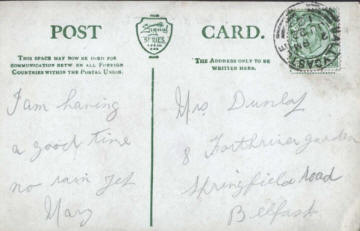 POST
CARD.
Signal
SERIES
THIS SPACE MAY NOW BE USED FOR
COMMUNICATION BETWEEN ALL FOREIGN
COUNTRIES WITHIN THE POSTAL UNION.
THE ADDRESS ONLY TO BE
WRITTEN HERE.
I am having
a good time
no rain yet
Mary
Mrs. Dunlop
8 Forthriver garden
Springfield Road
Belfast